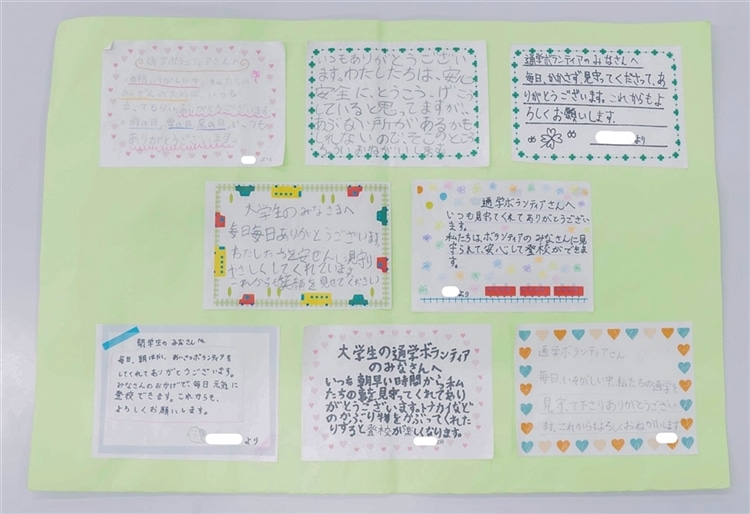 通学ボランティアさんへ
いつも
ありがとうございます。
より
いつもありがとうござい
ます。わたしたちは、安心
安全に、とうこう、げこう
していると思ってますが、
あぶない所があるかも
しれないので、そこのところ
おねがいします
通学ボランティアのみなさんへ
毎日、かかさず見守ってくださって、あ
りがとうございます。これからもよ
ろしくお願いします。
より
大学生のみなさまへ
毎日毎日ありがとうございます。
わたしたちを安ぜんに見守り
やさしくしてくれています。
これからも笑顔を見せてください
通学ボランティアさんへ
いつも見守ってくれてありがとうござい
ます。
私たちは、ボランティアのみなさんに見
守られて、安心して登校ができま
す。
より
関学生のみなさんへ
毎日、朝はやく、あいさつボランティアを
してくれてありがとうございます。
みなさんのおかげで、毎日元気に
登校できます。これからも、
よろしくお願いします。
より
大学生の通学ボランティア
のみなさんへ
いつも朝早い時間から私
たちの事を見守ってくれてあり
がとうございます。トナカイなど
のかぶり物をかぶってくれた
りすると登校が楽しくなります。
より
通学ボランティアさん
毎日、いそがしい中、私たちの通学を
見守って下さりありがとうござい
ます。これからもよろしくおねがいします